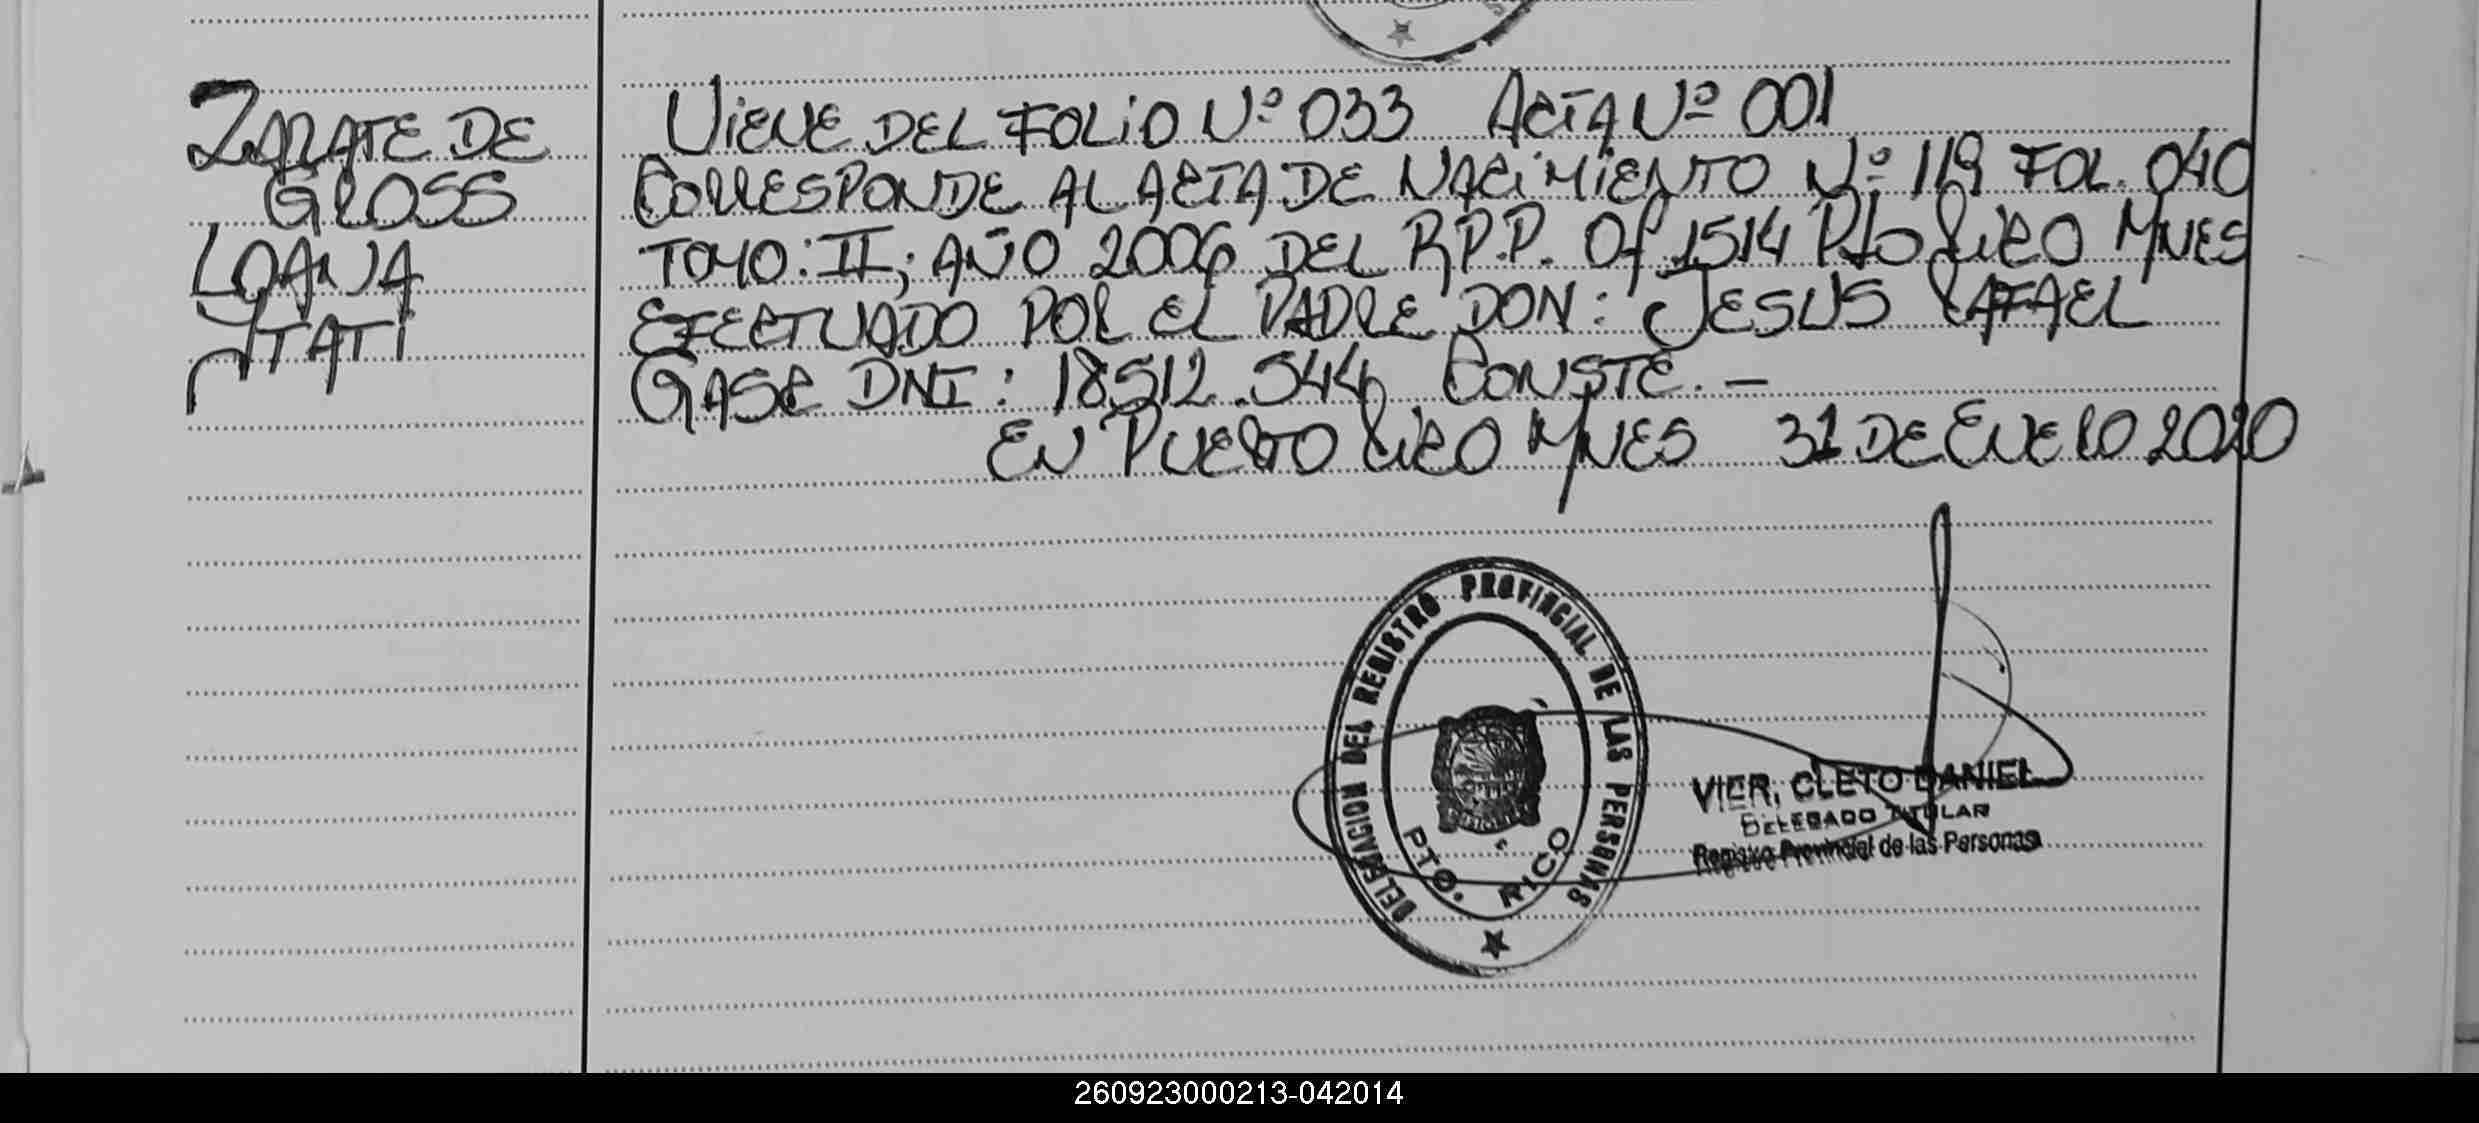 ZARATE DE
GROSS
LOANA
ITATI
VIENE DEL FOLIO Nº 033 ACTA Nº 001
CORRESPONDE AL ACTA DE NACIMIENTO Nº 119 FOL. 040
TOMO: II; AÑO 2006 DEL R.P.P. Of 1514 Pto RICO MNES
EFECTUADO POR EL PADRE DON: JESUS RAFAEL
GASE DNI: 18.512.544 CONSTE. —
EN PUERTO RICO MNES 31 DE ENERO 2020
DELEGACION DEL REGISTRO PROVINCIAL DE LAS PERSONAS
PTO. RICO
VIER, CLETO DANIEL
DELEGADO TITULAR
Registro Provincial de las Personas
260923000213-042014